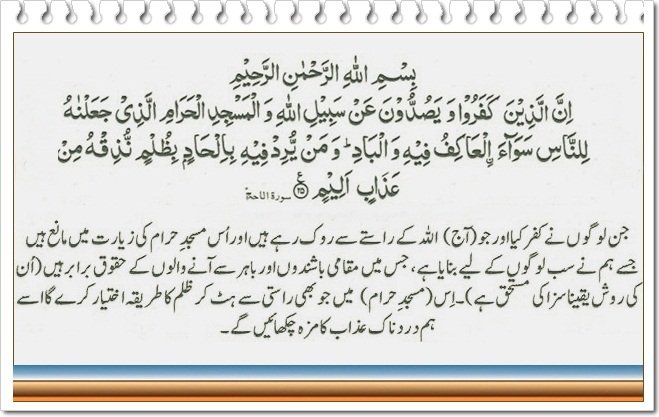 بِسْمِ اللهِ الرَّحْمٰنِ الرَّحِيْمِ
اِنَّ الَّذِيْنَ كَفَرُوْا وَ يَصُدُّوْنَ عَنْ سَبِيْلِ اللهِ وَ الْمَسْجِدِ الْحَرَامِ الَّذِىْ جَعَلْنٰهُ
لِلنَّاسِ سَوَآءَ ۨالْعَاكِفُ فِيْهِ وَ الْبَادِ ؕ وَ مَنْ يُّرِدْ فِيْهِ بِاِلْحَادٍۭ بِظُلْمٍ نُّذِقْهُ مِنْ
عَذَابٍ اَلِيْمٍ ﴿۲۵﴾ ع سورة الحج
جن لوگوں نے کفر کیا اور جو (آج) اللہ کے راستے سے روک رہے ہیں اور اُس مسجدِ حرام کی زیارت میں مانع ہیں
جسے ہم نے سب لوگوں کے لیے بنایا ہے، جس میں مقامی باشندوں اور باہر سے آنے والوں کے حقوق برابر ہیں (اُن
کی روش یقیناً سزا کی مستحق ہے)۔ اِس (مسجدِ حرام) میں جو بھی راستی سے ہٹ کر ظلم کا طریقہ اختیار کرے گا اسے
ہم دردناک عذاب کا مزہ چکھائیں گے۔